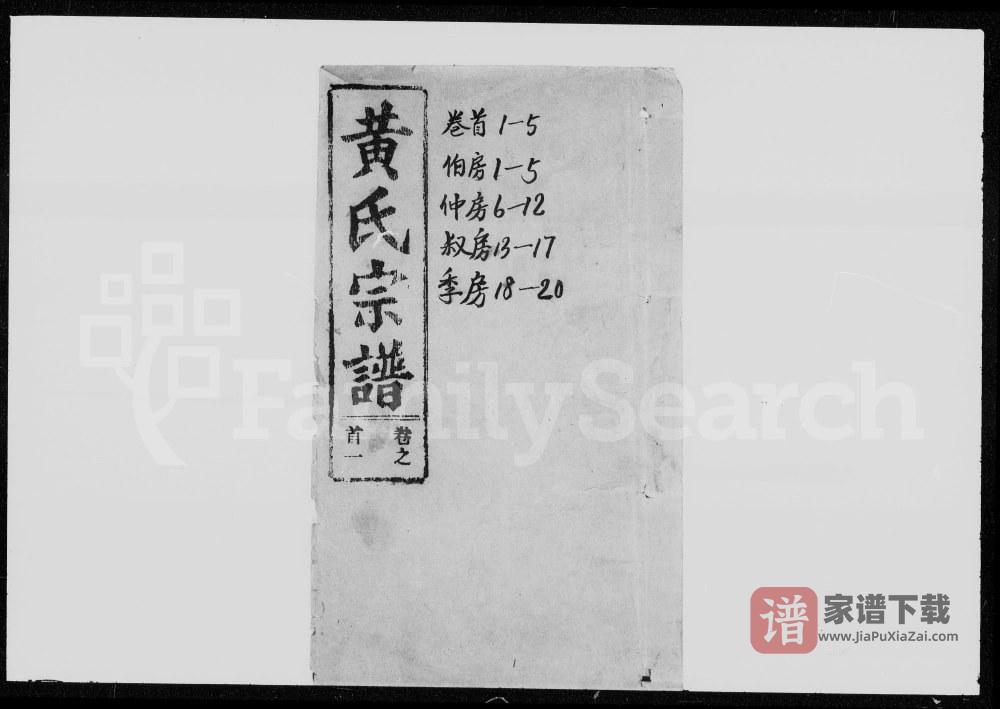 黄氏宗譜
卷之
首一
卷首 1-5
伯房 1-5
仲房 6-12
叔房 13-17
季房 18-20
FamilySearch
谱
家谱下载
www.JiaPuXiaZai.com